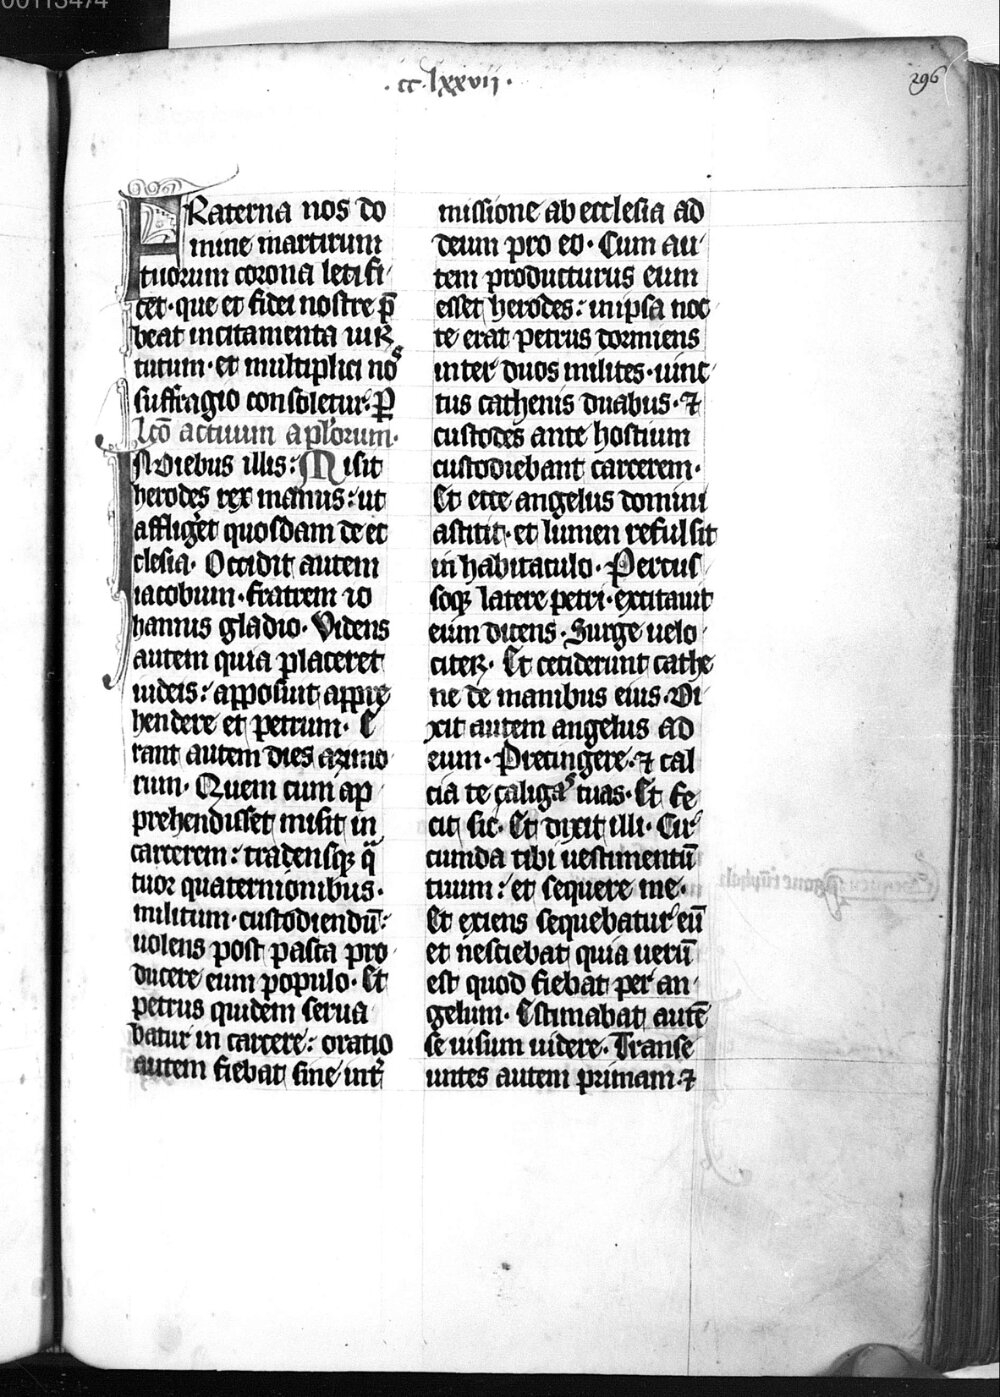 00115474
· cc · lxxvii ·
296
FRaterna nos do
mine martirum
tuorum corona letifi
cet · que et fidei nostre p̄
beat incitamenta uir
tutum · et multiplici nos
suffragio consoletur · P
Lc̄o actuum aplōrum ·
IN Diebus illis : Misit
herodes rex manus : ut
affligeret quosdam de ec
clesia · Occidit autem
iacobum · fratrem io
hannis gladio · Videns
autem quia placeret
iudeis : apposuit appre
hendere et petrum · E
rant autem dies azimo
rum · Quem cum ap
prehendisset misit in
carcerem : tradensqꝫ q̄
tuor quaternionibus ·
militum · custodiendū :
uolens post pasca pro
ducere eum populo · Et
petrus quidem serua
batur in carcere : oratio
autem fiebat sine int̄
missione ab ecclesia ad
deum pro eo · Cum au
tem producturus eum
esset herodes : in ipsa noc
te erat petrus dormiens
inter duos milites · uinc
tus cathenis duabus · ⁊
custodes ante hostium
custodiebant carcerem ·
Et ecce angelus domini
astitit · et lumen refulsit
in habitaculo · Percus
soqꝫ latere petri · excitauit
eum dicens · Surge uelo
citer · Et ceciderunt cathe
ne de manibus eius · Di
xit autem angelus ad
eum · Precingere · ⁊ cal
cia te caligas tuas · Et fe
cit sic · Et dixit illi · Cir
cumda tibi uestimentū
tuum : et sequere me ·
Et exiens sequebatur eū
et nesciebat quia uerū
est quod fiebat per an
gelum · Estimabat autē
se uisum uidere · Transe
untes autem primam ⁊